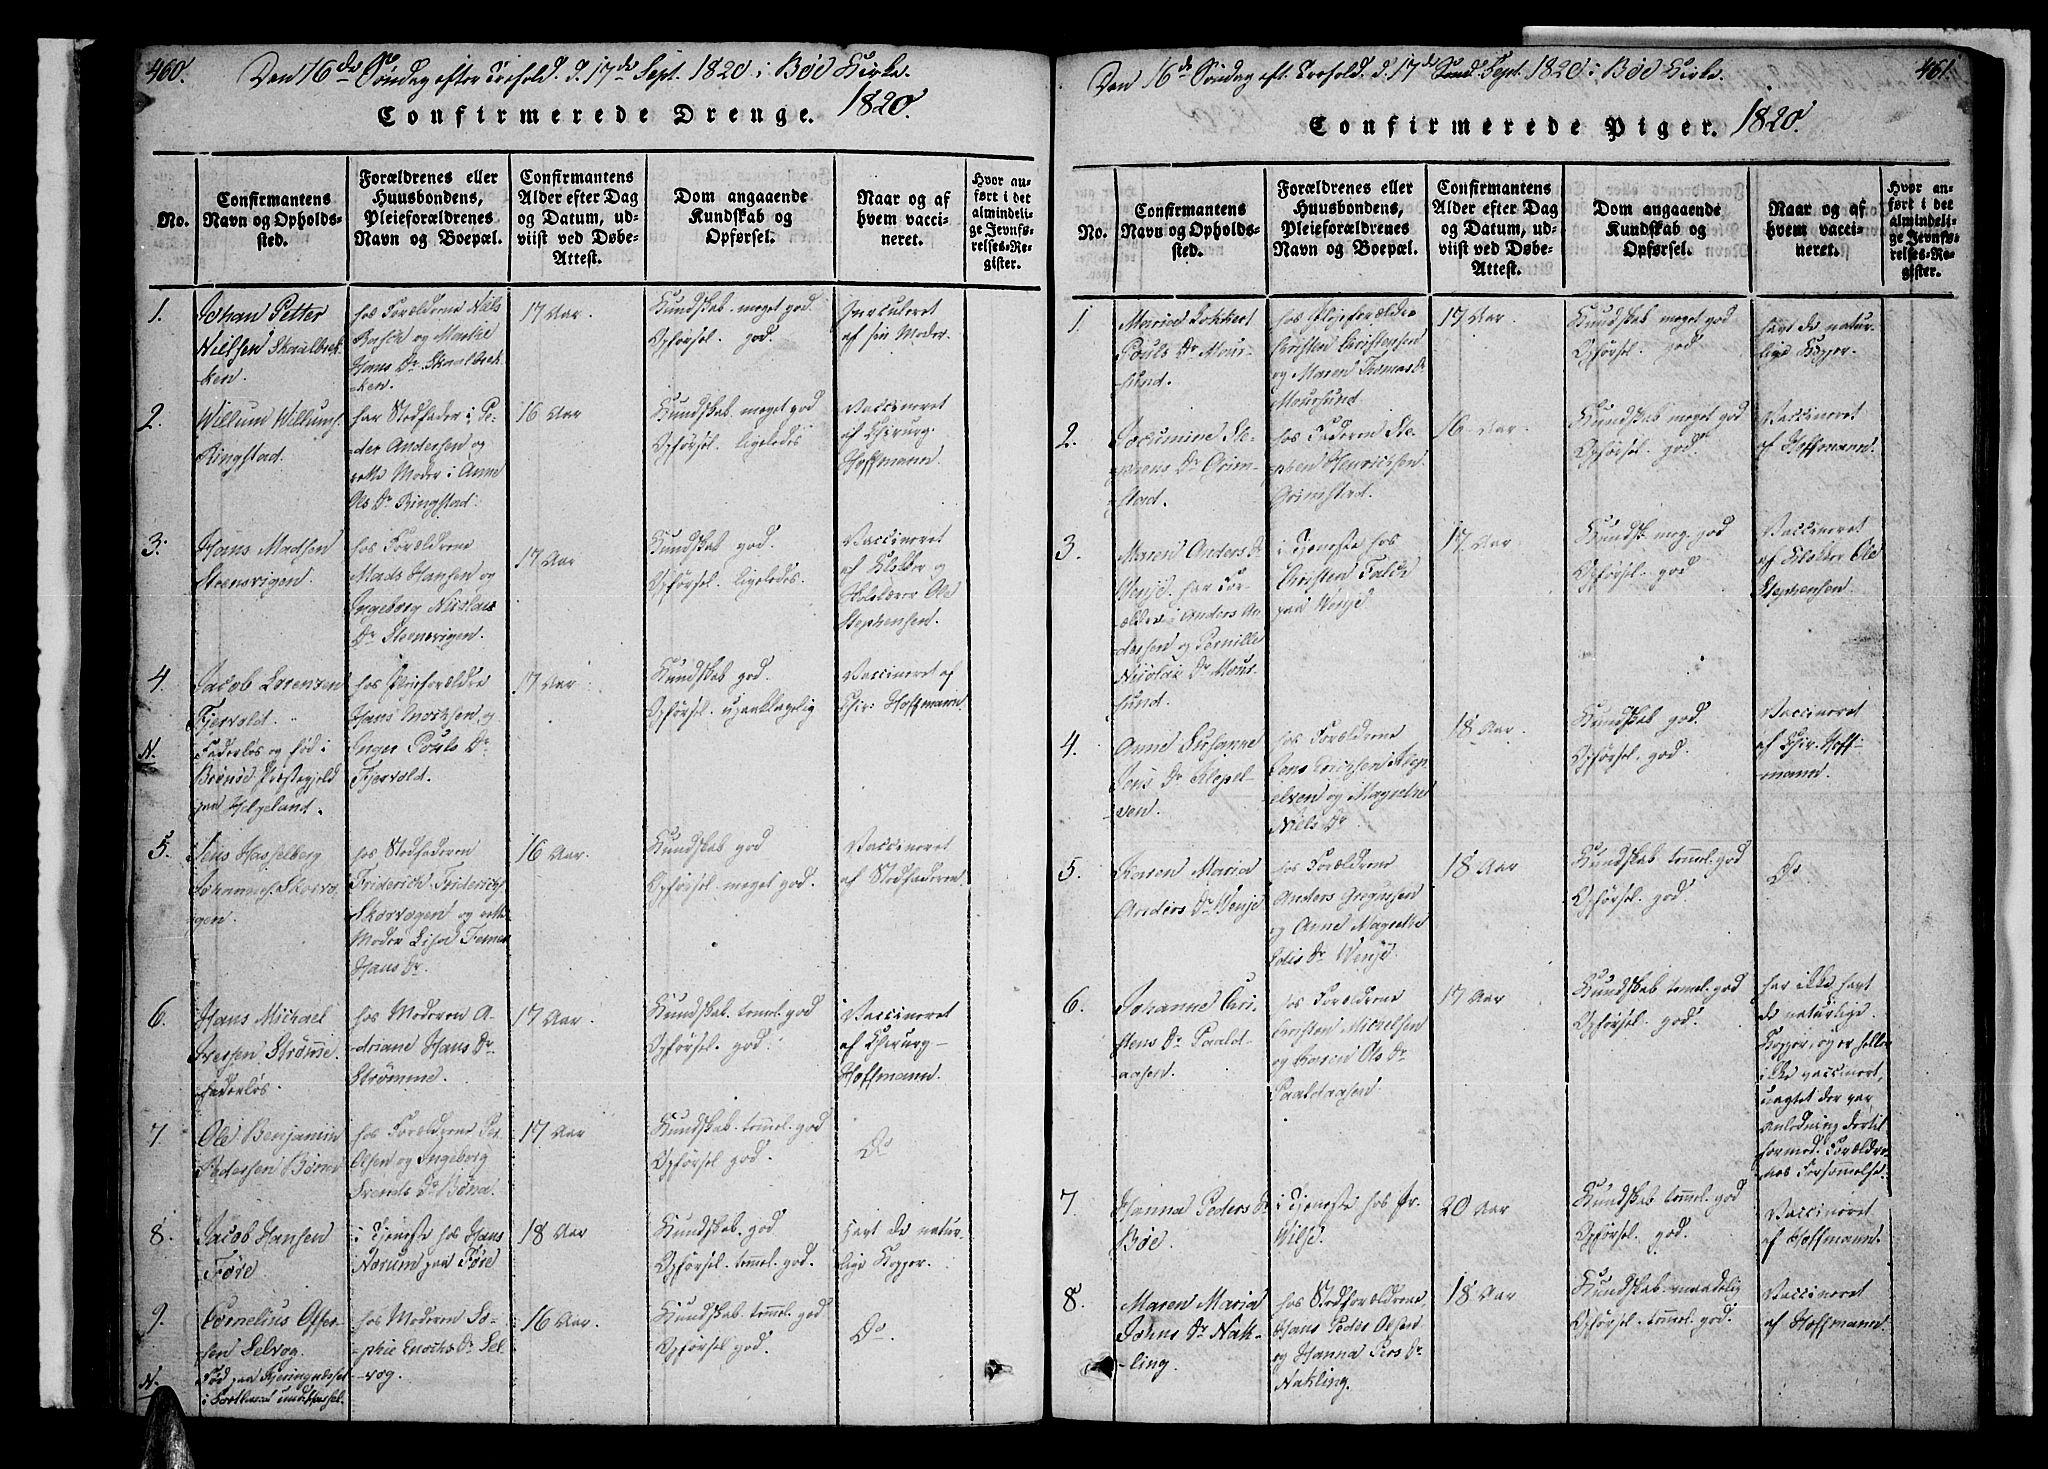 460.
Den 16de Søndag efter Trefold. d. 17de Sept. 1820 i Bøe Kirke.
Confirmerede Drenge. 1820.
No.
Confirmantens Navn og Opholds-sted.
Forældrenes eller Huusbondens, Pleieforældrenes Navn og Boepæl.
Confirmantens Alder efter Dag og Datum, ud-viist ved Døbe-Attest.
Dom angaaende Kundskab og Opførsel.
Naar og af hvem vacci-neret.
Hvor an-ført i det almindeli-ge Jevnfø-relses-Re-gister.
1.
Johan Petter
Nielsen Skaalbrek-
ken.
hos Forældrene Niels
Busch og Marthe
Hans Dr Skaalbrek-
ken.
17 Aar.
Kundskab meget god
Opførsel. god.
Inoculeret
af sin Moder.
2.
Willum Willums.
Ringstad.
har Stedfader i Pe-
der Andersen og
rette Moder i Anne
Ols Dr Ringstad.
16 Aar
Kundskab meget god
Opførsel. ligeledes
Vaccineret
af Chirurg.
Hoffmann.
3.
Hans Madsen
Steensvigen.
hos Forældrene
Mads Hansen og
Ingeborg Nicolai
Dr Steensvigen.
17 Aar
Kundskab god.
Opførsel. ligeledes.
Vaccineret
af Klokker og
Skolelærer Ole
Stephensen.
4.
Jacob Lorensen
Fjærvold.
N.
Faderløs og fød i
Brønøe Præstegjeld
paa Helgeland.
hos Pleieforældre
Hans Enochsen og
Inger Pouls Dr
Fjærvold.
17 Aar
Kundskab god.
Opførsel. upaaklagelig
Vaccineret af
Chir: Hoffmann
5.
Jens Hasselberg
Johannes. Skorva-
gen.
hos Stedfaderen
Friderich Friderichs.
Skorvagen og rette
Moder Lisa
Hans Dr.
16 Aar.
Kundskab god
Opførsel. meget god.
Vaccineret
af Stedfaderen.
6.
Hans Michael
Iversen Strømme.
faderløs.
hos Moderen A-
driane Hans Dr
Strømme.
17 Aar.
Kundskab. temel. god
Opførsel. god.
Vaccineret
af Chirurg
Hoffmann.
7.
Ole Benjamin
Pedersen Børøe
hos Forældrene Per
Olsen og Ingeborg
Svends Dr Børøe.
17 Aar
Kundskab. temel. god
Opførsel god.
Do
8.
Jacob Hansen
Føre
i Tjeneste hos Hans
Norum paa Føre
18 Aar
Kundskab. god
Opførsel. temmel. god.
Havt de natur-
lige Kopper.
9.
Cornelius
sen Selvog.
N.
Fød paa Kjeringnesset
i hos Moderen So-
phie Enochs Dr Sel-
vog.
16 Aar.
Kundskab. temel. god
Opførsel god.
Do
461.
Den 16de Søndag eft. Trefold. d. 17de Sept. 1820 i Bøe Kirke.
Confirmerede Piger. 1820.
No.
Confirmantens Navn og Opholds-sted.
Forældrenes eller Huusbondens, Pleieforældrenes Navn og Boepæl.
Confirmantens Alder efter Dag og Datum, ud-viist ved Døbe-Attest.
Dom angaaende Kundskab og Opførsel.
Naar og af hvem vacci-neret.
Hvor an-ført i det almindeli-ge Jevnfø-relses-Re-gister.
1.
Maria Lokkert
Pouls Dr Mour-
sund.
hos Plejeforældre
Christen Christensen
og Maren Thomas Dr
Moursund
17 Aar
Kundskab meget god
Opførsel. god
havt de natur-
lige Kopper.
2.
Jocumine Ste-
phens Dr Grim-
stad.
hos Faderen Ste-
phen Henrichsen
Grimstad.
16 Aar.
Kundskab meget god
Opførsel. god.
Vaccineret
af Hoffmann.
3.
Maren Anders Dr
Wenje. har For-
ældre i Anders An-
dersen og Pernille
Nicolai Dr Mour-
sund.
i Tjeneste hos
Christen Falch
paa Wenje
17 Aar.
Kundsk. meg. god
Opførsel. god
Vaccineret
af Klokker Ole
Stephensen.
4.
Anne Susanne
Jens Dr Klepel-
ven.
hos Forældrene
Jens Erichsen Klep-
elven og Magrethe
Niels Dr
18 Aar.
Kundskab god.
Opførsel. god.
Vaccineret
af Chir. Hoff-
mann.
5.
Karen Maria
Anders Dr Wenje
hos Forældrene
Anders Gregusen
og Anne Magrethe
Edis Dr Wenje.
18 Aar
Kundskab temel. god
Opførsel. god.
Do
6.
Johanne Chri-
stens Dr Paald-
aasen.
hos Forældrene
Christen Michelsen
og Karen Ols Dr
Paaldaasen
17 Aar
Kundskab temel. god
Opførsel. god.
har ikke havt
de naturlige
Kopper, og er heller
ikke vaccineret,
uagtet der var
Anledning dertil
formed. Forældre-
nes Forsømmelse.
7.
Hanna Peders Dr
Bøe.
i Tjeneste hos Fr.
Wilse.
20 Aar
Kundskab temel. god
Opførsel. god.
Vaccineret
af Hoffmann.
8.
Maren Maria
Johns Dr Nak-
ling.
hos Stedforældrene,
Hans Peder Olsen
og Hanna Pers Dr
Nakling.
18 Aar
Kundskab. maadelig
Opførsel. temel. god.
Vaccineret
af Hoffmann.